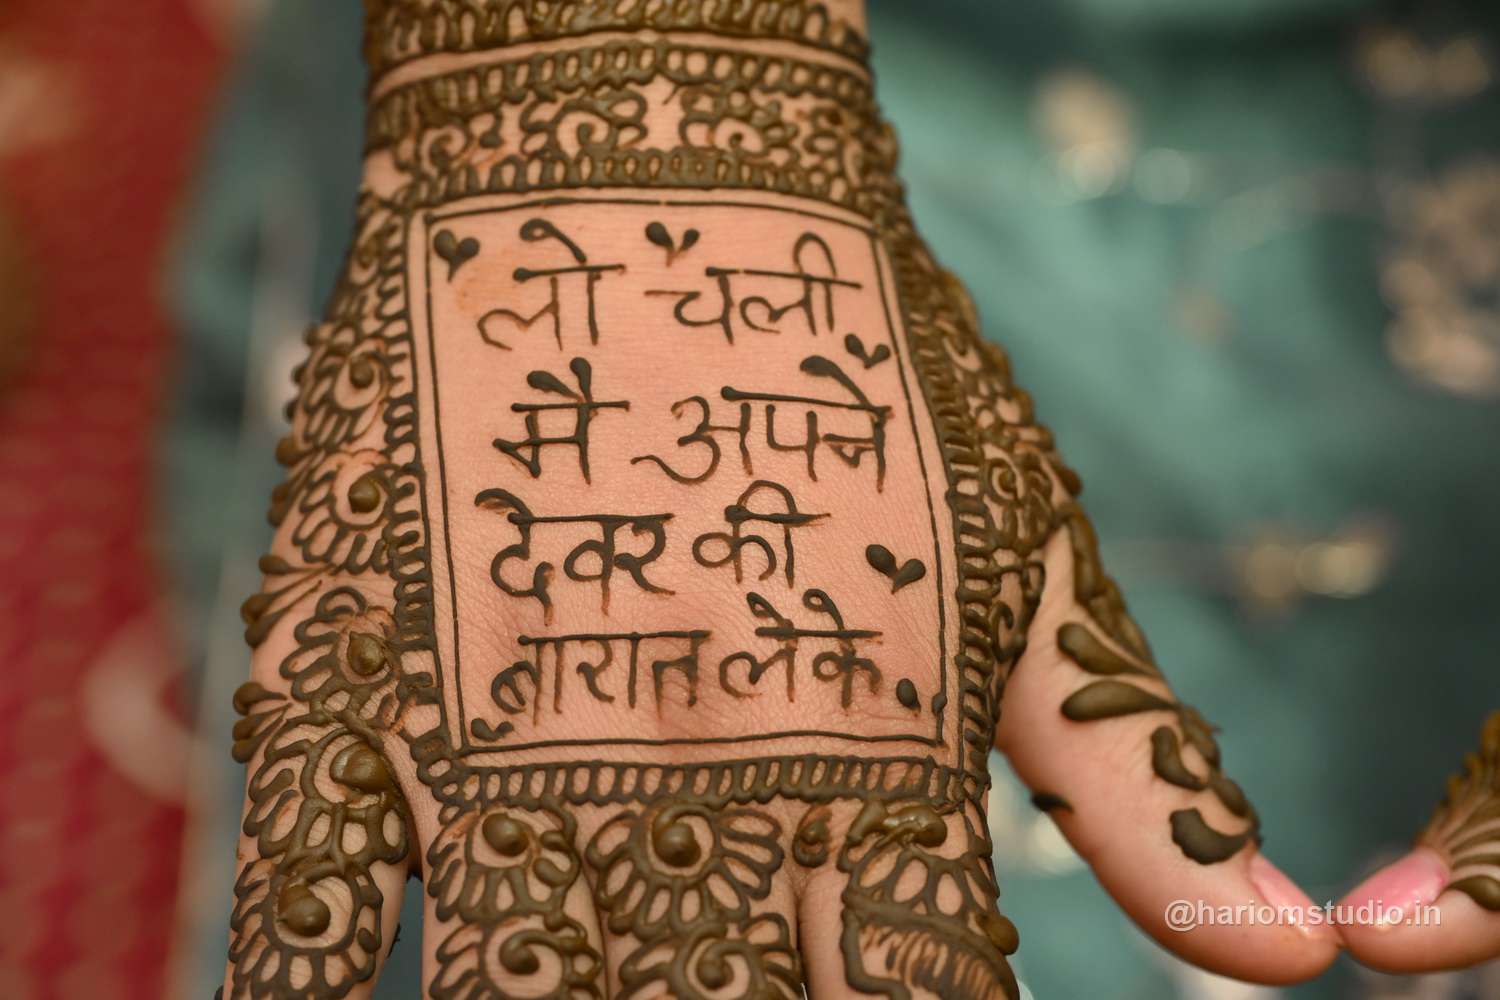 लो चली
मैं अपने
देवर की
बारात लेके.
@hariomstudio.in